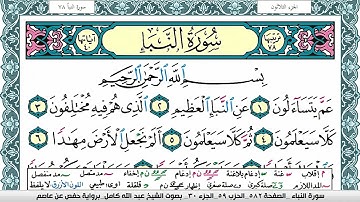 سورة النبأ ٧٨
الجزء الثلاثون
سُورَةُ النَّبَإِ
ترتيبها ٧٨
آياتها ٤٠
بِسْمِ اللَّهِ الرَّحْمَٰنِ الرَّحِيمِ
عَمَّ يَتَسَاءَلُونَ ١ عَنِ النَّبَإِ الْعَظِيمِ ٢ الَّذِي هُمْ فِيهِ مُخْتَلِفُونَ ٣
كَلَّا سَيَعْلَمُونَ ٤ ثُمَّ كَلَّا سَيَعْلَمُونَ ٥ أَلَمْ نَجْعَلِ الْأَرْضَ مِهَادًا ٦
سورة النباء . الصفحة ٥٨٢ الحزب ٥٩ . الجزء ٣٠ . بصوت الشيخ عبد الله كامل. برواية حفص عن عاصم